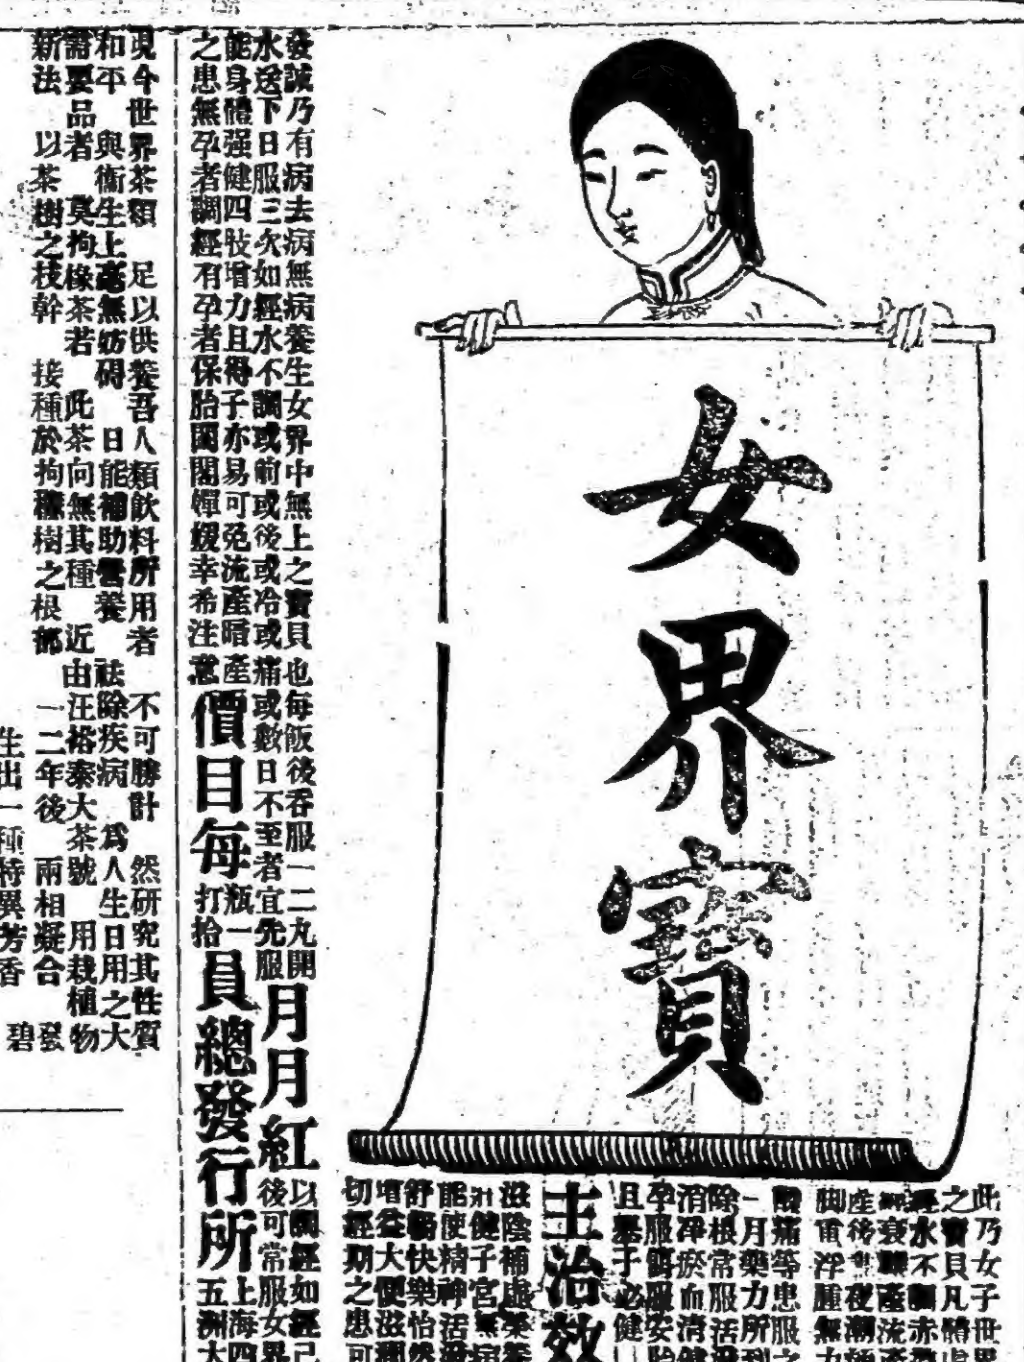 女界寶
此乃女子世界
之寶貝凡體虛
經水不調赤
衰難產流產
產後夜潮
脚面浮腫無力
酸痛等患服之
一月藥力所到
除根常服活
消淨瘀血清健
孕服服安胎
且子必健
主治效
滋陰補虛榮養
壯健子宮無病
能使精神活
舒暢快樂怡然
增益大便滋潤
切經期之患可
發誠乃有病去病無病養生女界中無上之寶貝也每飯後吞服一二丸開
水送下日服三次如經水不調或前或後或冷或痛或數日不至者宜先服月月紅以調經如經已
後可常服女界
能身體强健四肢增力且得子亦易可免流產暗產
之患無孕者調經有孕者保胎閨閣嬋媛幸希注意價目每瓶一
打拾員總發行所上海四
五洲大
現今世界茶類 足以供養吾人類飲料所用者 不可勝計 然研究其性質
和平 與衛生上毫無妨碍 日能補助營養 祛除疾病 爲人生日用之大
需要品者 莫拘橼茶若 此茶向無其種 近由汪裕泰大茶號 用栽植物
新法 以茶樹之枝幹 接種於拘橼樹之根部 一二年後 兩相凝合 發
生出一種特異芳香 碧